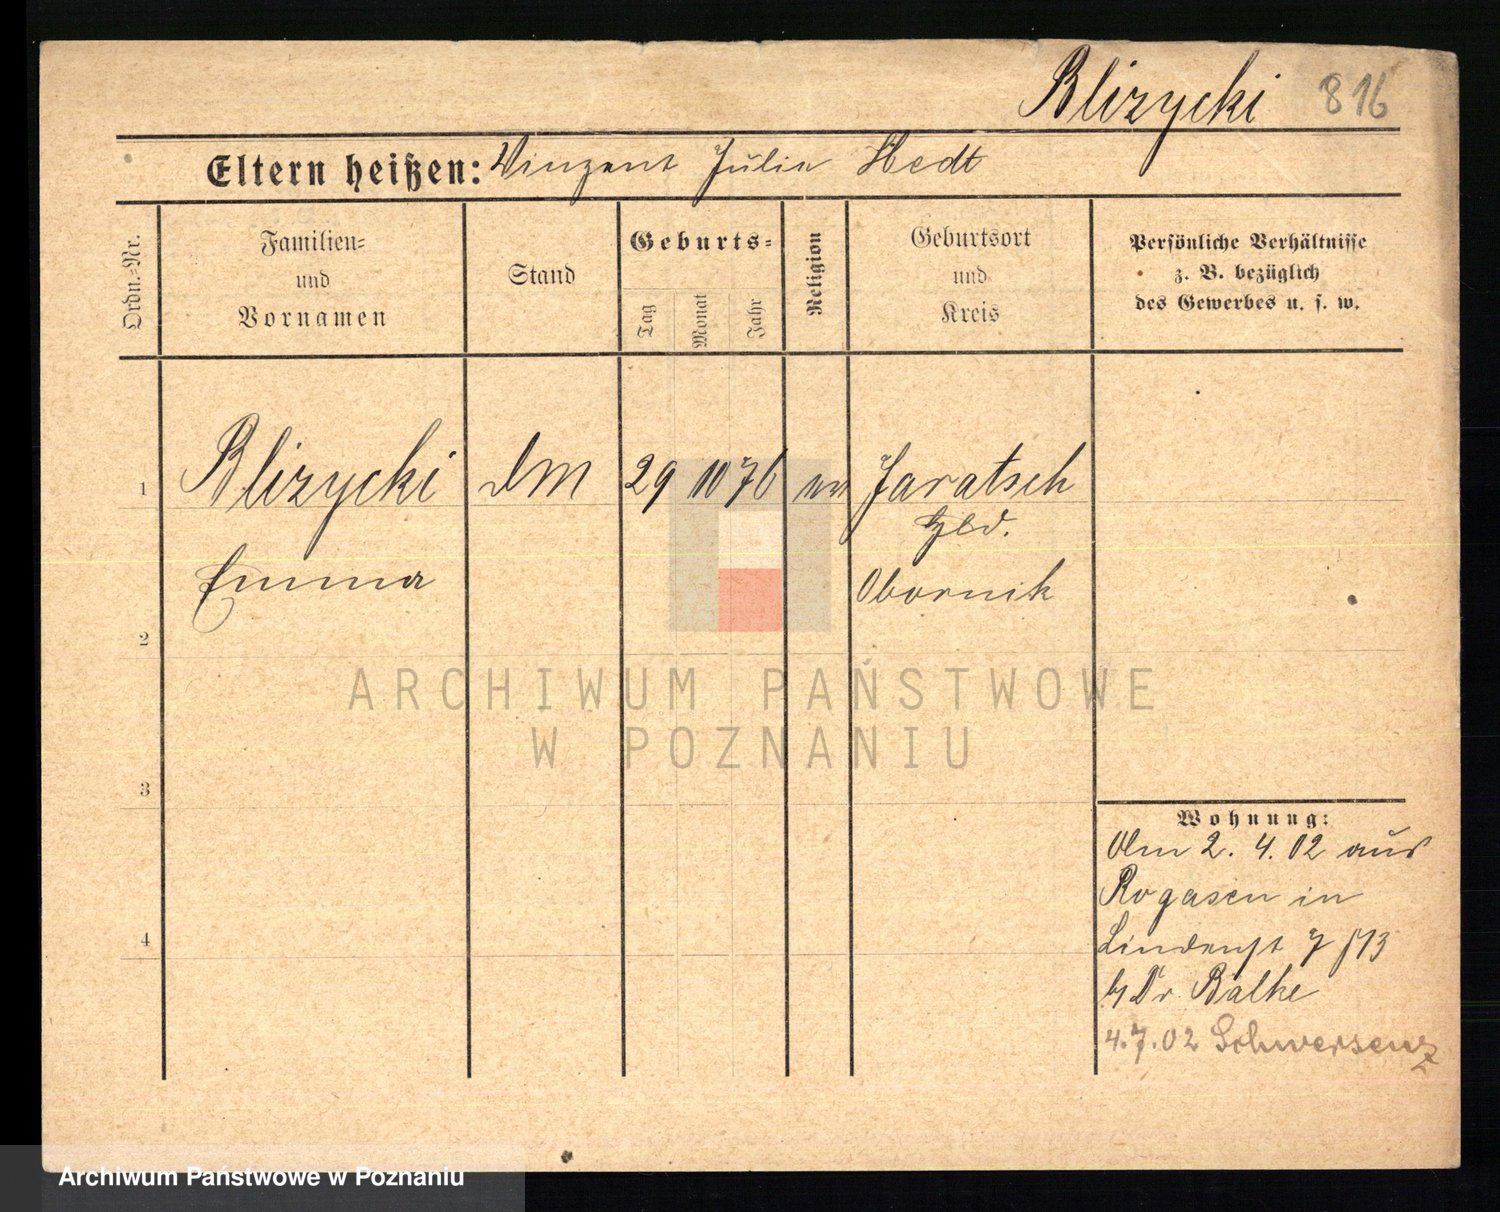 Blizycki 816
Eltern heißen: Vinzent Julia Hedt
Ordn.=Nr.
Familien=
und
Vornamen
Stand
Geburts=
Tag
Monat
Jahr
Religion
Geburtsort
und
Kreis
Persönliche Verhältnisse
z. B. bezüglich
des Gewerbes u. s. w.
1 Blizycki DM 29 10 76 ev Jaratsch
Hld.
Emma Obornik
2
ARCHIWUM PAŃSTWOWE
W POZNANIU
3
Wohnung:
Am 2. 4. 02 aus
Rogasen in
4
Lindenst 7
b/ Dr Balke
4.7.02 Schwersenz
Archiwum Państwowe w Poznaniu